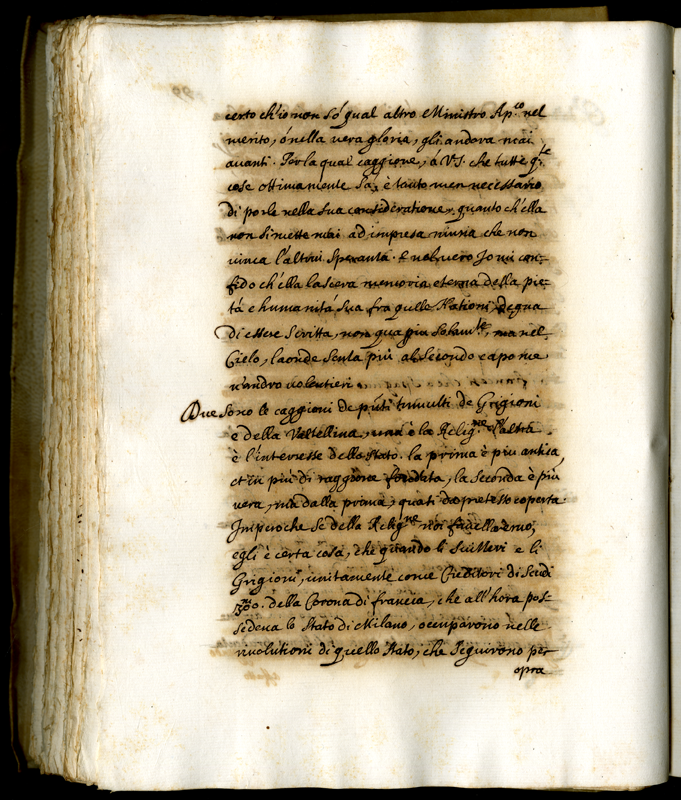 certo ch'io non só qual altro Ministro Ap.co nel
merito, ó nella vera gloria, gli andava mai
avanti. Per la qual caggione, á V.S. che tutte q.te
cose ottimamente sá, è tanto men necessario
di porle nella sua consideratione, quanto ch'ella
non si mette mai ad impresa niuna che non
vinca l'altrui speranza. E nel vero Io mi con-
fido ch'ella lascerà memoria eterna della pie-
tá e humanitá sua fra quelle Nationi, degna
di essere scritta, non qua giu solam.te, ma nel
Cielo, laonde senza più al secondo capo me
n'andro volentieri
Due sono le caggioni de p'nti tumulti de Grigioni
e della Valtellina, una è la Relig.ne e l'altra
è l'interesse dello stato. la prima è piu antica,
et in piú di raggione fondata, la seconda è piú
vera, ma dalla prima, quasi da pretesto coperta
Imperoche se della Relig.ne noi favellaremo,
egli è certa cosa, che quando li Suizzeri e li
Grigioni, unitamente come Creditori di scudi
300.m della Corona di francia, che all'hora pos-
sedeva lo stato di Milano, occuparono nelle
rivolutioni di quello stato, che seguirono per
opra